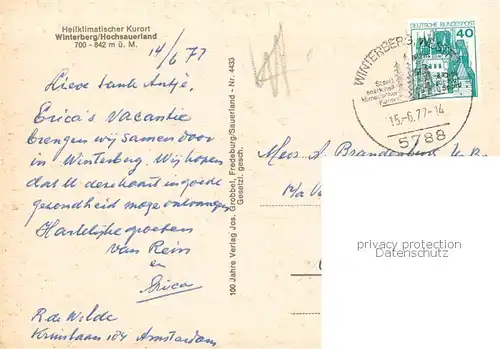 Heilklimatischer Kurort
Winterberg/Hochsauerland
700 - 842 m ü. M.
14/6 77
Lieve tante Antje,
Erica's vacantie
brengen wij samen door
in Winterberg. Wij hopen
dat U de kaart in goede
gezondheid moge ontvangen
Hartelijke groeten
van Rein
en
Erica
R. de Wilde
Amsterdam
100 Jahre Verlag Jos. Grobbel, Fredeburg/Sauerland - Nr. 4433
Gesetzl. gesch.
DEUTSCHE BUNDESPOST
40
WINTERBERG, WESTF
Staatl.
anerkannter
Kurort
15.-6.77-14
5788
A. Brandenburg
privacy protection
Datenschutz